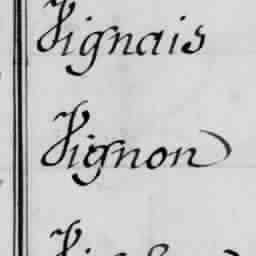 Vignais
Vignon